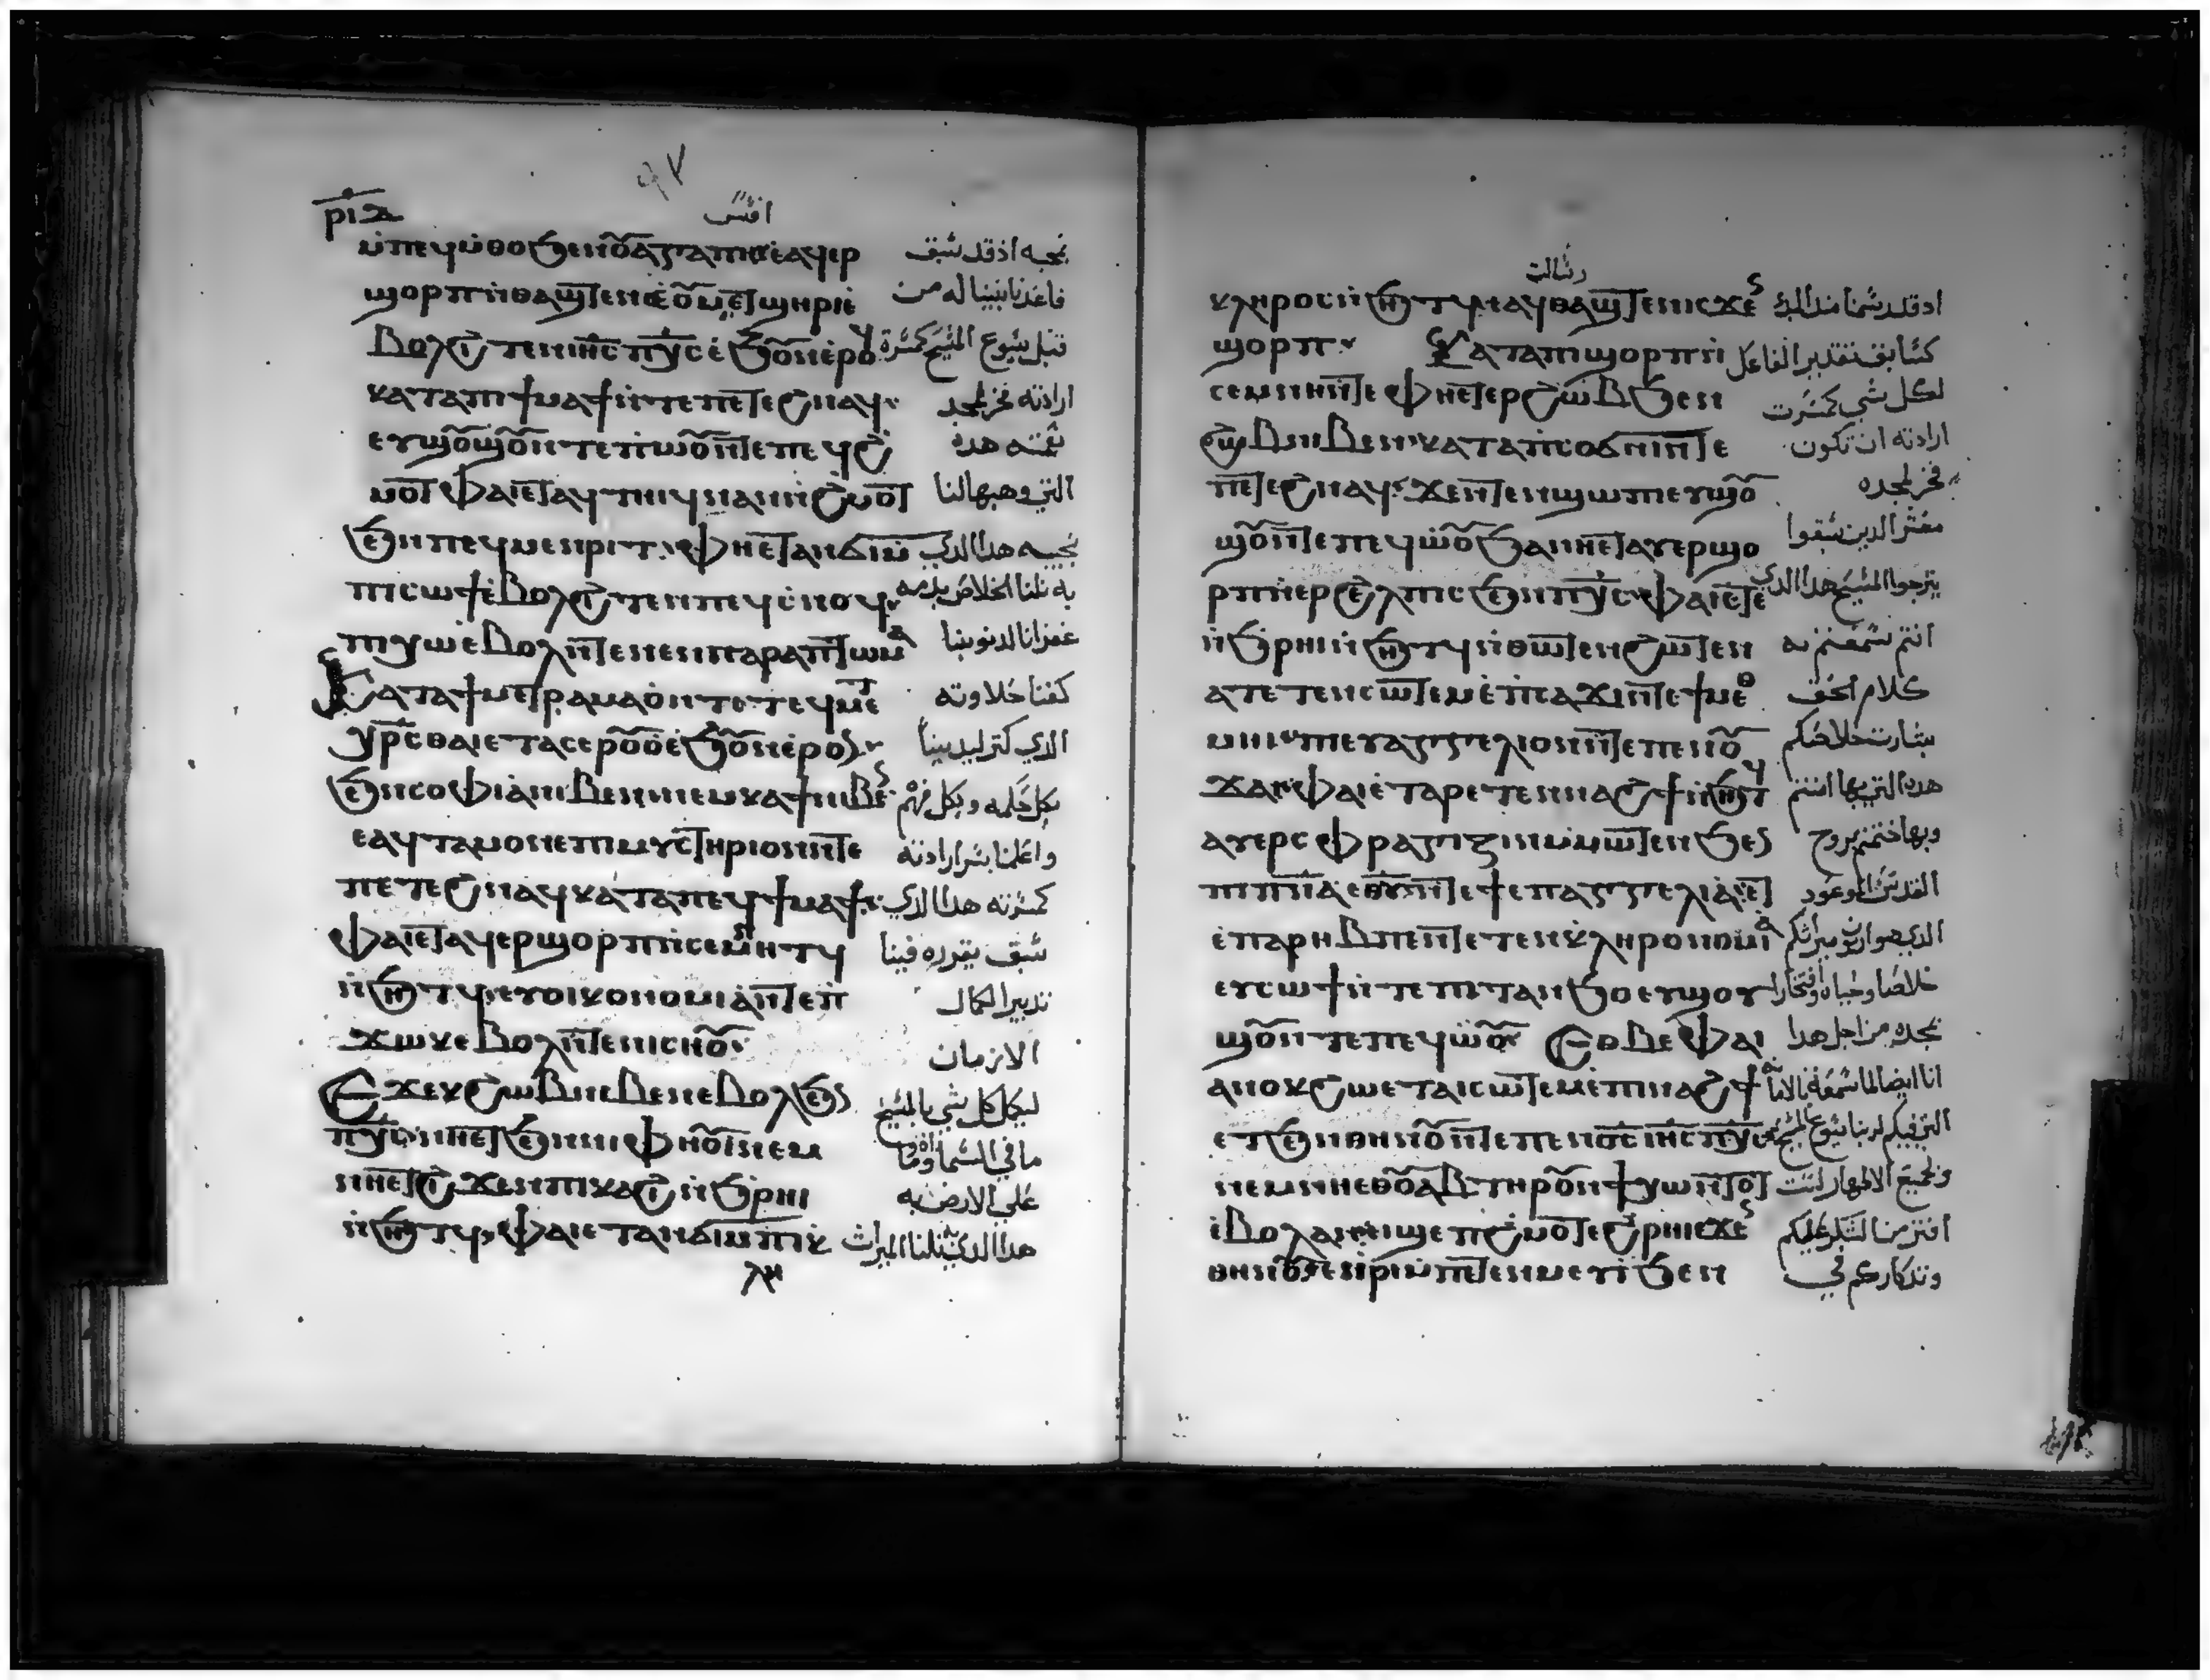 ⲣⲓⲍ
٩٧
افسس
ⲙ̇ⲡⲉϥⲙ̇ⲑⲟ ϧⲉⲛⲟⲩⲁⲅⲁⲡⲏ ⲉ̇ⲁϥⲉⲣ بمحبه اذ قد سبق
ϣⲟⲣⲡ ⲛ̇ⲑⲁϣⲧⲉⲛ ⲉ̇ⲟⲩⲙⲉⲧϣⲏⲣⲓ ⲉ̇ فاعدنا بنينا له من
ⲃⲟⲗ ϩⲓⲧⲉⲛ ⲓⲏⲥ ⲡⲭⲥ ⲉ̇ϧⲟⲩⲛ ⲉ̇ⲣⲟϥ قبل يسوع المسيح كمسرة
ⲕⲁⲧⲁ ⲡϯⲙⲁϯ ⲛ̇ⲧⲉ ⲡⲉⲧⲉϩⲛⲁϥ ارادته فخر لمجد
ⲉⲩϣⲟⲩϣⲟⲩ ⲛ̇ⲧⲉ ⲡⲱ̇ⲟⲩ ⲛ̇ⲧⲉ ⲡⲉϥϩ̇ نعمته هذه
ⲙⲟⲧ ⲫⲁⲓ ⲉⲧⲁϥⲧⲏⲓϥ ⲛⲁⲛ ⲛ̇ϩⲙⲟⲧ التي وهبها لنا
ϧⲉⲛ ⲡⲉϥⲙⲉⲛⲣⲓⲧ ⲫⲏⲉⲧⲁⲛϭⲓ ⲙ̇ بحبيبه هذا الذي
ⲡⲓⲥⲱϯ ⲉ̇ⲃⲟⲗ ϩⲓⲧⲉⲛ ⲡⲉϥⲥ̇ⲛⲟϥ به نلنا الخلاص بدمه
ⲡⲓⲭⲱ ⲉ̇ⲃⲟⲗ ⲛ̇ⲧⲉ ⲛⲉⲛⲡⲁⲣⲁⲡⲧⲱⲙⲁ غفرانا لذنوبنا
ⲕⲁⲧⲁ ϯⲙⲉⲧⲣⲁⲙⲁⲟ̇ ⲛ̇ⲧⲉ ⲧⲉϥⲙⲉⲧ كغنا حلاوته
ⲭⲣⲥ ⲑⲁⲓ ⲉⲧⲁⲥⲉⲣϩⲟⲩⲟ̇ ⲉ̇ϧⲟⲩⲛ ⲉ̇ⲣⲟⲛ الذي كتر لدينا
ϧⲉⲛ ⲥⲟⲫⲓⲁ̇ ⲛⲓⲃⲉⲛ ⲛⲉⲙ ⲕⲁϯ ⲛⲓⲃⲉⲛ بكل حكمه وبكل فهم
ⲉⲁϥⲧⲁⲙⲟⲛ ⲉⲡⲓⲙⲩⲥⲧⲏⲣⲓⲟⲛ ⲛ̇ⲧⲉ واعلمنا بسر ارادته
ⲡⲉⲧⲉϩⲛⲁϥ ⲕⲁⲧⲁ ⲡⲉϥϯⲙⲁϯ كمسرته هذا الذي
ⲫⲁⲓ ⲉⲧⲁϥⲉⲣϣⲟⲣⲡ ⲛ̇ⲥⲉⲙⲛⲏⲧϥ سبق يقرره فينا
ⲛ̇ϧⲏⲧϥ ⲉⲩⲟⲓⲕⲟⲛⲟⲙⲓⲁ̇ ⲛ̇ⲧⲉ ⲡ̇ تدبير الكمال
ϫⲱⲕ ⲉ̇ⲃⲟⲗ ⲛ̇ⲧⲉ ⲛⲓⲥⲏⲟⲩ الازمان
ⲉ̇ϫⲉⲕ ϩⲱⲃ ⲛⲓⲃⲉⲛ ⲉ̇ⲃⲟⲗ ϧⲉⲛ ليكمل كل شي بالمسيح
ⲡⲭⲥ ⲛⲏⲉⲧϧⲉⲛ ⲛⲓⲫⲏⲟⲩⲓ̇ ⲛⲉⲙ ما في السما وما
ⲛⲏⲉⲧϩⲓϫⲉⲛ ⲡⲓⲕⲁϩⲓ ⲛ̇ϧⲣⲏⲓ علي الارض به
ⲛ̇ϧⲏⲧϥ ⲫⲁⲓ ⲉⲧⲁⲛϭⲓ ⲙ̇ⲡⲓⲕ̇ هذا الذي نلنا الميراث
ⲗⲏ
رسالة
ⲕⲗⲏⲣⲟⲥ ⲛ̇ϧⲏⲧϥ ⲉⲁϥⲑⲁϣⲧⲉⲛ ⲓⲥϫⲉⲛ اذ قد رسمنا منذ البدء
ϣⲟⲣⲡ ⲕⲁⲧⲁ ⲡϣⲟⲣⲡ ⲛ̇ كسابق تقدير الفاعل
ⲥⲉⲙⲛⲏ ⲛ̇ⲧⲉ ⲫⲏⲉⲧⲉⲣϩⲱⲃ ϧⲉⲛ لكل شي كمسرت
ϩⲱⲃ ⲛⲓⲃⲉⲛ ⲕⲁⲧⲁ ⲡⲥⲟϭⲛⲓ ⲛ̇ⲧⲉ ارادته ان نكون
ⲡⲉⲧⲉϩⲛⲁϥ ϫⲉ ⲛ̇ⲧⲉⲛϣⲱⲡⲓ ⲉⲩϣⲟⲩ فخر لمجده
ϣⲟⲩ ⲛ̇ⲧⲉ ⲡⲉϥⲱ̇ⲟⲩ ϧⲁ ⲛⲏⲉⲧⲁⲩⲉⲣϣⲟ معشر الذين سبقوا
ⲣⲡ ⲛ̇ⲉⲣϩⲉⲗⲡⲓⲥ ϧⲉⲛ ⲡⲭⲥ ⲫⲁⲓ ⲉⲧⲉ يترجوا المسيح هذا الذي
ⲛ̇ϧⲣⲏⲓ ⲛ̇ϧⲏⲧϥ ⲛ̇ⲑⲱⲧⲉⲛ ϩⲱⲧⲉⲛ انتم سمعتم به
ⲁⲧⲉⲧⲉⲛⲥⲱⲧⲉⲙ ⲉ̇ⲡⲥⲁϫⲓ ⲛ̇ⲧⲉ ϯⲙⲉⲑ كلام الحق
ⲙⲏⲓ ⲡⲉⲩⲁⲅⲅⲉⲗⲓⲟⲛ ⲛ̇ⲧⲉ ⲡⲉⲛⲟⲩ بشارت خلاصكم
ϫⲁⲓ ⲫⲁⲓ ⲉ̇ⲧⲁⲣⲉⲧⲉⲛⲛⲁϩϯ ⲛ̇ϧⲏⲧϥ هذه التي بها امنتم
ⲁⲩⲉⲣⲥⲫⲣⲁⲅⲓⲍⲓⲛ ⲙ̇ⲙⲱⲧⲉⲛ ϧⲉⲛ وبها ختمتم بروح
ⲡⲓⲡⲛⲁ ⲉⲑⲩ ⲛ̇ⲧⲉ ϯⲉⲡⲁⲅⲅⲉⲗⲓⲁ̇ ⲉⲧ القدس الموعود
ⲉ̇ⲡⲁⲣⲏⲃ ⲡⲉ ⲛ̇ⲧⲉ ⲧⲉⲛⲕ̇ⲗⲏⲣⲟⲛⲟⲙⲓⲁ الذي هو اربون ميراثكم
ⲉⲩⲥⲱϯ ⲛ̇ⲧⲉ ⲡⲧⲁⲛϧⲟ ⲉⲩϣⲟⲩ خلاصا وحياه وافتخارا
ϣⲟⲩ ⲛ̇ⲧⲉ ⲡⲉϥⲱ̇ⲟⲩ ⲉⲑⲃⲉ ⲫⲁⲓ بمجده من اجل هذا
ⲁⲛⲟⲕ ϩⲱ ⲉⲧⲁⲓⲥⲱⲧⲉⲙ ⲉ̇ⲡⲓⲛⲁϩϯ انا ايضا لما سمعت بالامانة
ⲉⲧϧⲉⲛ ⲑⲏⲛⲟⲩ ⲛ̇ⲧⲉ ⲡⲉⲛⲟⲥ ⲓⲏⲥ ⲡⲭⲥ التي فيكم لربنا يسوع المسيح
ⲛⲉⲙ ⲛⲏⲉⲑⲟⲩⲁⲃ ⲧⲏⲣⲟⲩ ⲛ̇ϯⲭⲱ ⲛ̇ⲧⲟⲧ ولجميع الاطهار لست
ⲉ̇ⲃⲟⲗ ⲁⲛ ⲉⲓϣⲉⲡϩ̇ⲙⲟⲧ ⲉϩ̇ⲣⲏⲓ ⲉϫⲉⲛ افتر من الشكر عليكم
ⲑⲏⲛⲟⲩ ⲉⲓⲣⲓ ⲙ̇ⲡⲉⲧⲉⲛⲙⲉⲩⲓ̇ ϧⲉⲛ وتذكاركم في